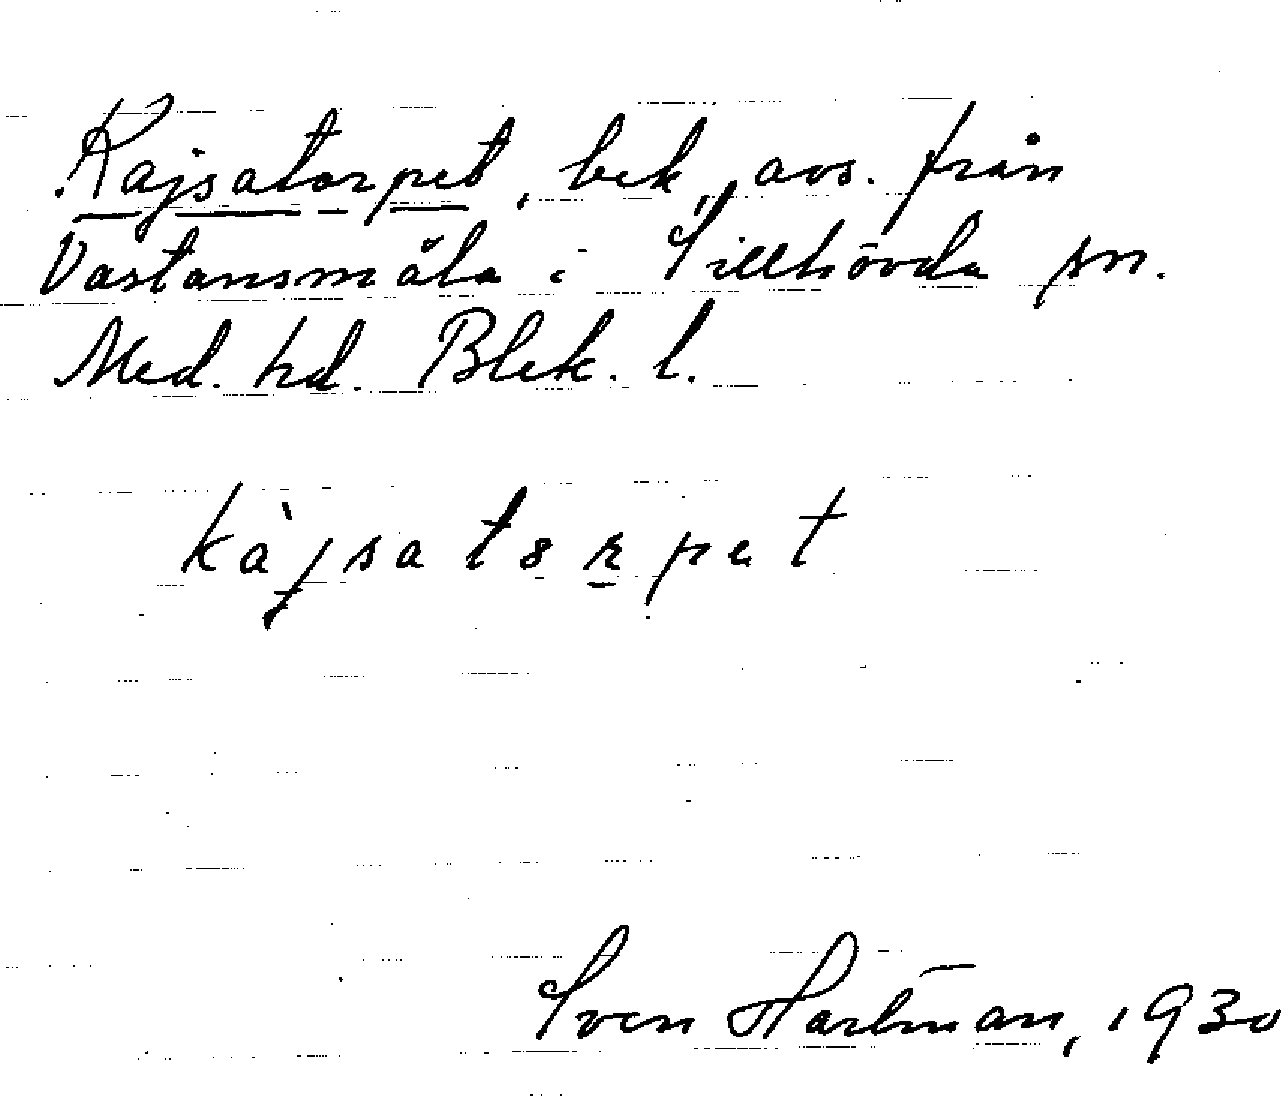 Kajsatorpet, bek, avs. från
Västansmåla i Tillhövda sn.
Med. hd. Blek. l.
kàjsatorpet
Sven Hartman, 1930